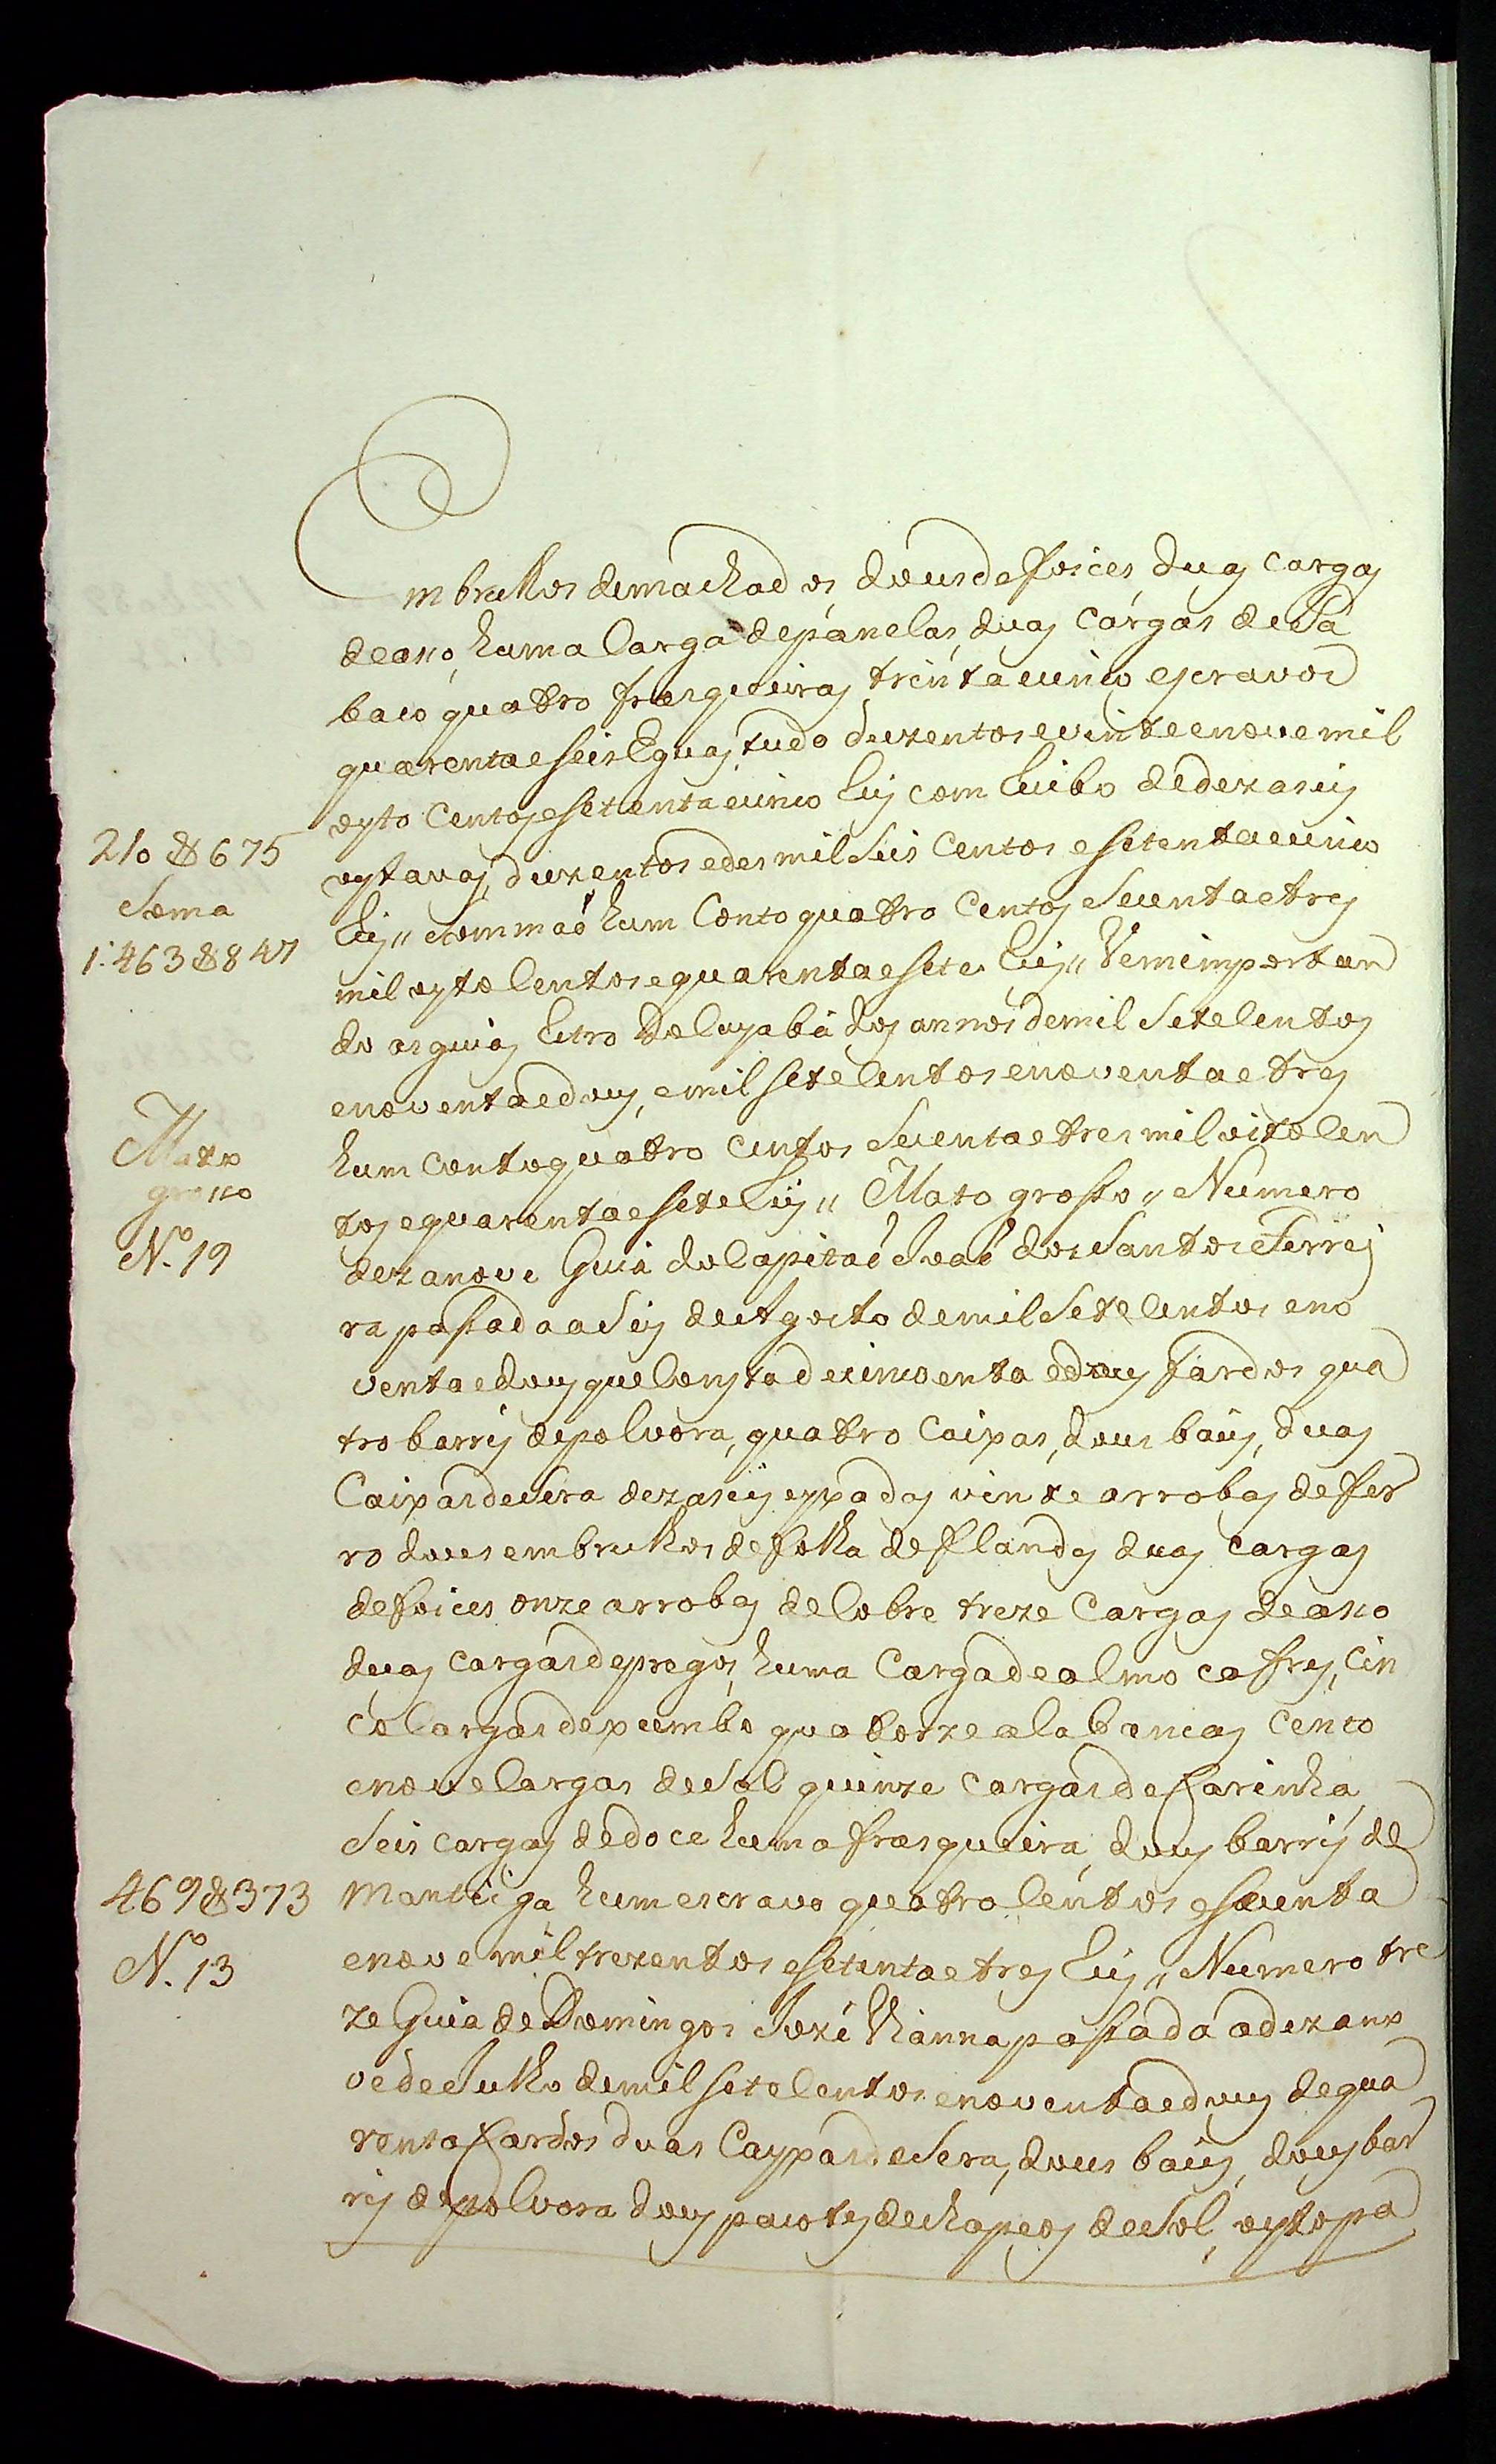 Embrulhos de machados, dous de foices, duas cargas
de asso, huma Carga de panelas, duas cargas de Ta
baco quatro frasqueiras, trinta e cinco escravos
quarenta e seis Eguas, tudo duzentos e vinte e nove mil
oyto Centos e setenta e cinco Reis com Recibo de dezaseis
oytavas, duzentos e des mil Seis Centos e setenta e cinco
210$675
Reis,, Sommaõ hum Conto quatro Centos Secenta e tres
Soma
1:463$847
mil oyto Centos e quarenta e sete Reis,, Vem importan
do as guias Retro do Cuyabá dos annos de mil Sete Centos
e noventa e dous, e mil sete Centos e noventa e tres
hum Conto quatro Centos Secenta e tres mil oito Cen
Mato
grosso
tos e quarenta e sete Reis,, Mato grosso,, Numero
Nº. 19
dezanove Guia do Capitaõ Joaõ dos Santos Ferrei
ra passada a Seis de Agosto de mil Sete Centos e no
venta e dous que Consta de cincoenta e dous fardos qua
tro barris de polvora, quatro Caixas, dous baûs, duas
Caixas de Sera dezaseis espadas vinte arrobas de fer
ro dous embrulhos de folha de flandes duas cargas
de foices onze arrobas de Cobre treze Cargas de asso
duas cargas de pregos, huma Carga de almocafres, Cin
co Cargas de xumbo quatorze alabancas Cento
e nove Cargas de Sal quinze cargas de farinha,
Seis cargas de doce huma frasqueira, dous barris de
469$373
Manteiga hum escravo quatro Centos e Secenta
Nº. 13
e nove mil trezentos e setenta e tres Reis,, Numero tre
ze Guia de Domingos José Vianna passada a dezano
ve de Julho de mil sete Centos e noventa e dous de qua
renta fardos duas Cayxas de Sera, dous baûs, dous bar
ris de polvora dous pacotes de chapeos de Sol, oyto pa